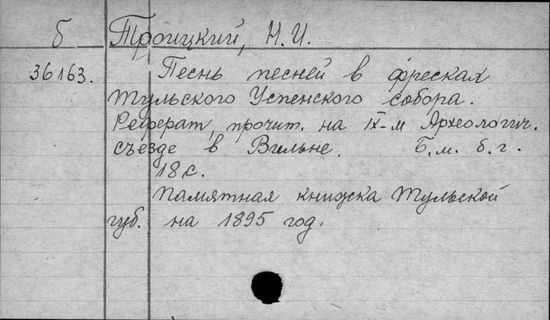 Б Троицкий, Н.И.
36163. Песнь песней в фресках
Тульского Успенского собора.
Реферат прочит. на IX-м Археологич.
съезде в Вильне. Б.м. б.г.
18с.
Памятная книжка Тульской
губ. на 1895 год.